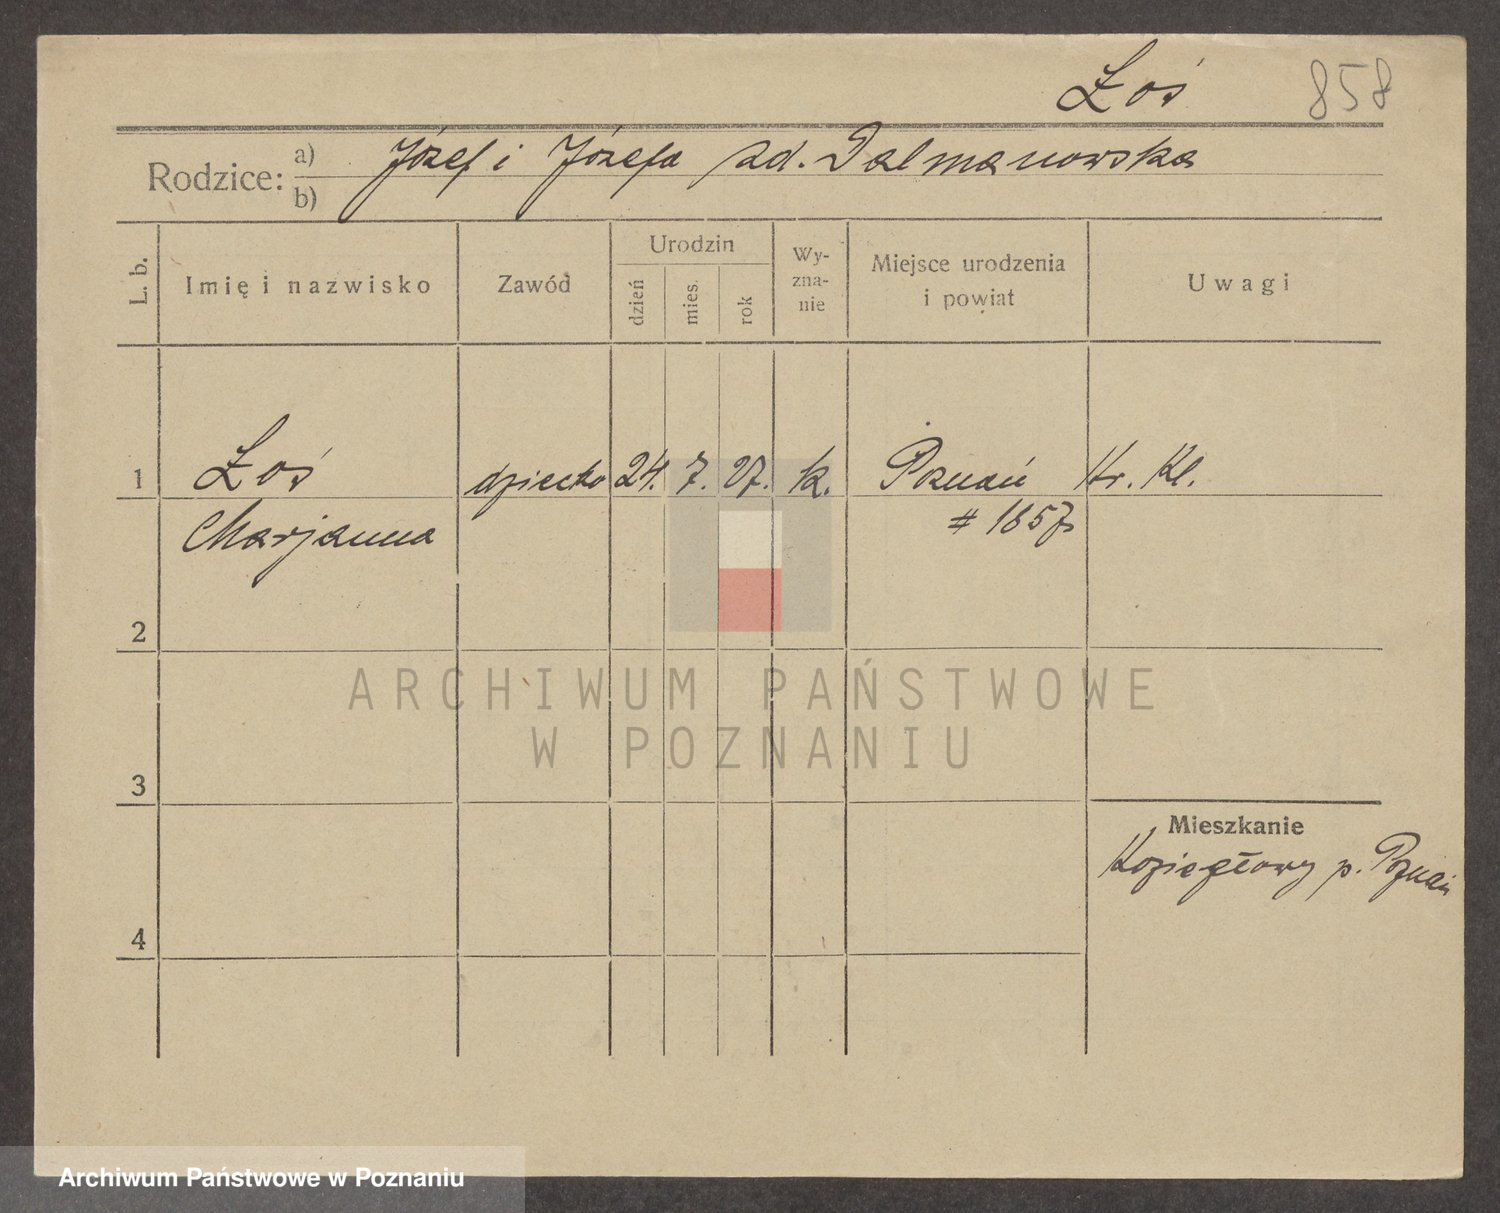 Łoś 858
Rodzice: a) Józef i Józefa zd. Dalmanowska
b)
L. b. Imię i nazwisko Zawód Urodzin dzień mies. rok Wyznanie Miejsce urodzenia i powiat Uwagi
1 Łoś dziecko 24. 7. 27. k. Poznań Kr. Kl.
Marjanna # 1657
2
3
Mieszkanie
Koziegłowy p. Poznań
4
ARCHIWUM PAŃSTWOWE
W POZNANIU
Archiwum Państwowe w Poznaniu